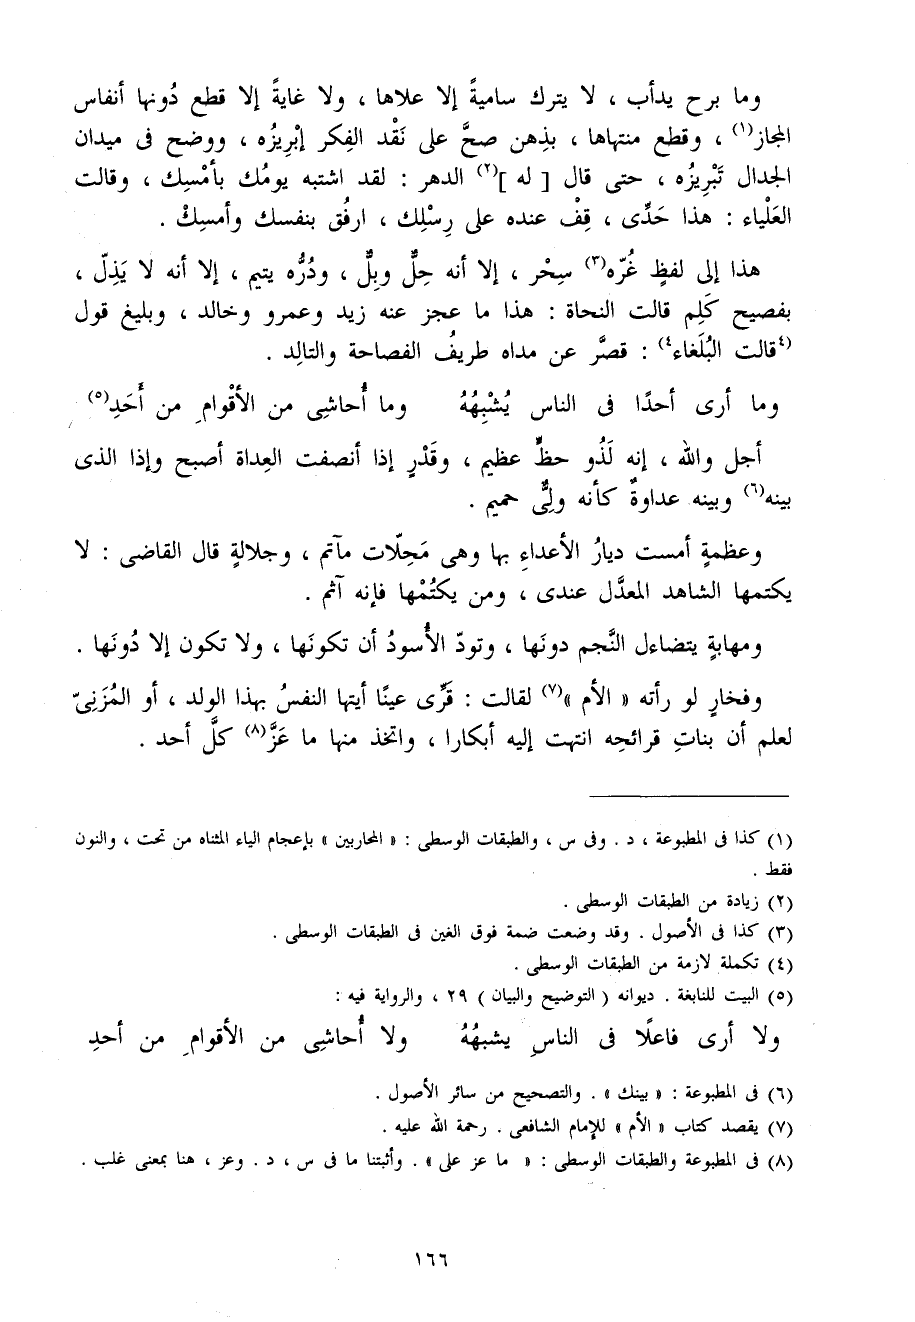 وما برح يدأب ، لا يترك ساميةً إلا علاها ، ولا غايةً إلا قطع دُونها أنفاس
المجاز(١) ، وقطع منتهاها ، بذِهن صحَّ على نَقْد الفِكر إبْرِيزُه ، ووضح فى ميدان
الجدال تَبْرِيزُه ، حتى قال [ له ](٢) الدهر : لقد اشتبه يومُك بأمْسِك ، وقالت
العَلْياء : هذا حَدِّى ، قِفْ عنده على رِسْلِك ، ارفُق بنفسك وأمسِكْ .
هذا إلى لفظٍ غُرّه(٣) سِحْر ، إلا أنه حِلٌّ وبِلٌّ ، ودُرُّه يتيم ، إلا أنه لا يَذِلّ ،
بفصيح كَلِم قالت النحاة : هذا ما عجز عنه زيد وعمرو وخالد ، وبليغ قول
(٤قالت البُلَغاء٤) : قصَّر عن مداه طريفُ الفصاحة والتالِد .
وما أرى أحدًا فى الناس يُشْبِهُهُ وما أُحاشِى من الأقْوامِ من أَحَدِ(٥)
أجل والله ، إنه لَذُو حظٍّ عظيم ، وقَدْرٍ إذا أنصفت العِداة أصبح وإذا الذى
بينه(٦) وبينه عداوةٌ كأنه ولِىٌّ حميم .
وعظمةٍ أمست ديارُ الأعداءِ بها وهى مَحِلّات مآتم ، وجلالةٍ قال القاضى : لا
يكتمها الشاهد المعدَّل عندى ، ومن يكتُمْها فإنه آثم .
ومهابةٍ يتضاءل النَّجم دونَها ، وتودّ الأُسودُ أن تكونَها ، ولا تكون إلا دُونَها .
وفخارٍ لو رأته « الأم »(٧) لقالت : قَرِّى عينًا أيتها النفسُ بهذا الولد ، أو المُزَنِىّ
لعلم أن بناتِ قرائحِه انتهت إليه أبكارا ، واتخذ منها ما عَزَّ(٨) كلَّ أحد .
(١) كذا فى المطبوعة ، د . وفى س ، والطبقات الوسطى : « المحاربين » بإعجام الياء المثناه من تحت ، والنون
فقط .
(٢) زيادة من الطبقات الوسطى .
(٣) كذا فى الأصول . وقد وضعت ضمة فوق الغين فى الطبقات الوسطى .
(٤) تكملة لازمة من الطبقات الوسطى .
(٥) البيت للنابغة . ديوانه ( التوضيح والبيان ) ٢٩ ، والرواية فيه :
ولا أرى فاعلًا فى الناسِ يشبهُهُ ولا أُحاشِى من الأقوامِ من أحدِ
(٦) فى المطبوعة : « بينك » . والتصحيح من سائر الأصول .
(٧) يقصد كتاب « الأم » للإمام الشافعى . رحمة الله عليه .
(٨) فى المطبوعة والطبقات الوسطى : « ما عز على » . وأثبتنا ما فى س ، د . وعز ، هنا بمعنى غلب .
١٦٦